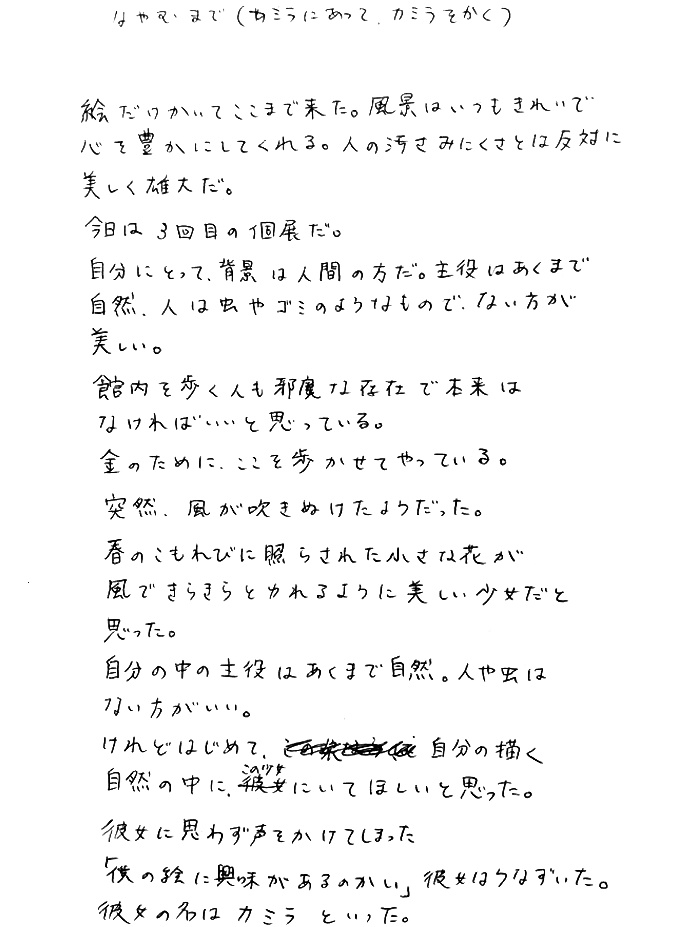 なやむまで(カミラにあって、カミラをかく)
絵だけかいてここまで来た。風景はいつもきれいで
心を豊かにしてくれる。人の汚さみにくさとは反対に
美しく雄大だ。
今日は3回目の個展だ。
自分にとって、背景は人間の方だ。主役はあくまで
自然、人は虫やゴミのようなもので、ない方が
美しい。
館内を歩く人も邪魔な存在で本来は
なければいいと思っている。
金のために、ここを歩かせてやっている。
突然、風が吹きぬけたようだった。
春のこもれびに照らされた小さな花が
風できらきらとゆれるように美しい少女だと
思った。
自分の中の主役はあくまで自然。人や虫は
ない方がいい。
けれどはじめて、自分の描く
自然の中に、この少女にいてほしいと思った。
彼女に思わず声をかけてしまった
「僕の絵に興味があるのかい」彼女はうなずいた。
彼女の名はカミラといった。